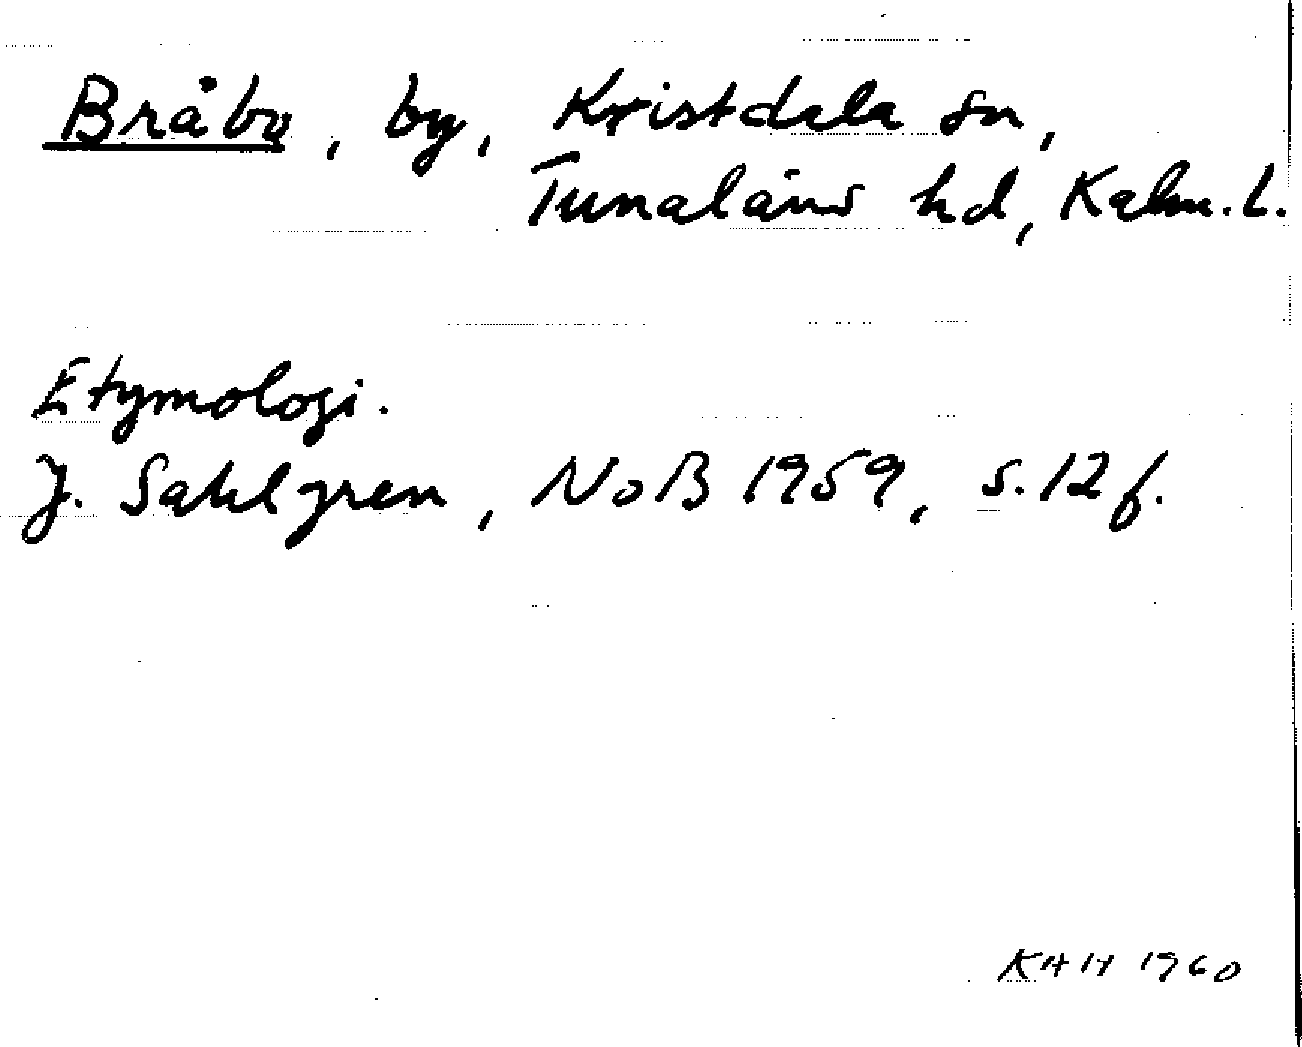 Bråbo, by, Kristdala sn,
Tunaläns hd, Kalm. l.
Etymologi.
J. Sahlgren, NoB 1959, s. 12 f.
KHH 1960